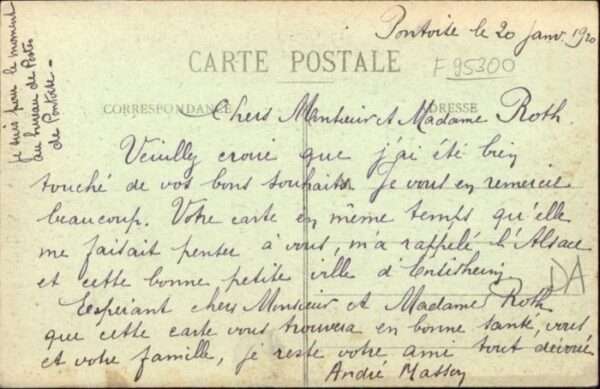 Pontoise le 20 janv. 1920
CARTE POSTALE
F 95300
CORRESPONDANCE
ADRESSE
Chers Monsieur et Madame Roth.
Veuilly croire que j'ai été bien
touché de vos bons souhaits. Je vous en remercie
beaucoup. Votre carte en même temps qu'elle
me faisait penser à vous, m'a rappelé l'Alsace
et cette bonne petite ville d'Ensisheim.
Espérant chers Monsieur et Madame Roth
que cette carte vous trouvera en bonne santé, vous
et votre famille, je reste votre ami tout dévoué
André Masson
DA
je suis pour le moment
au bureau de Postes
de Pontoise -